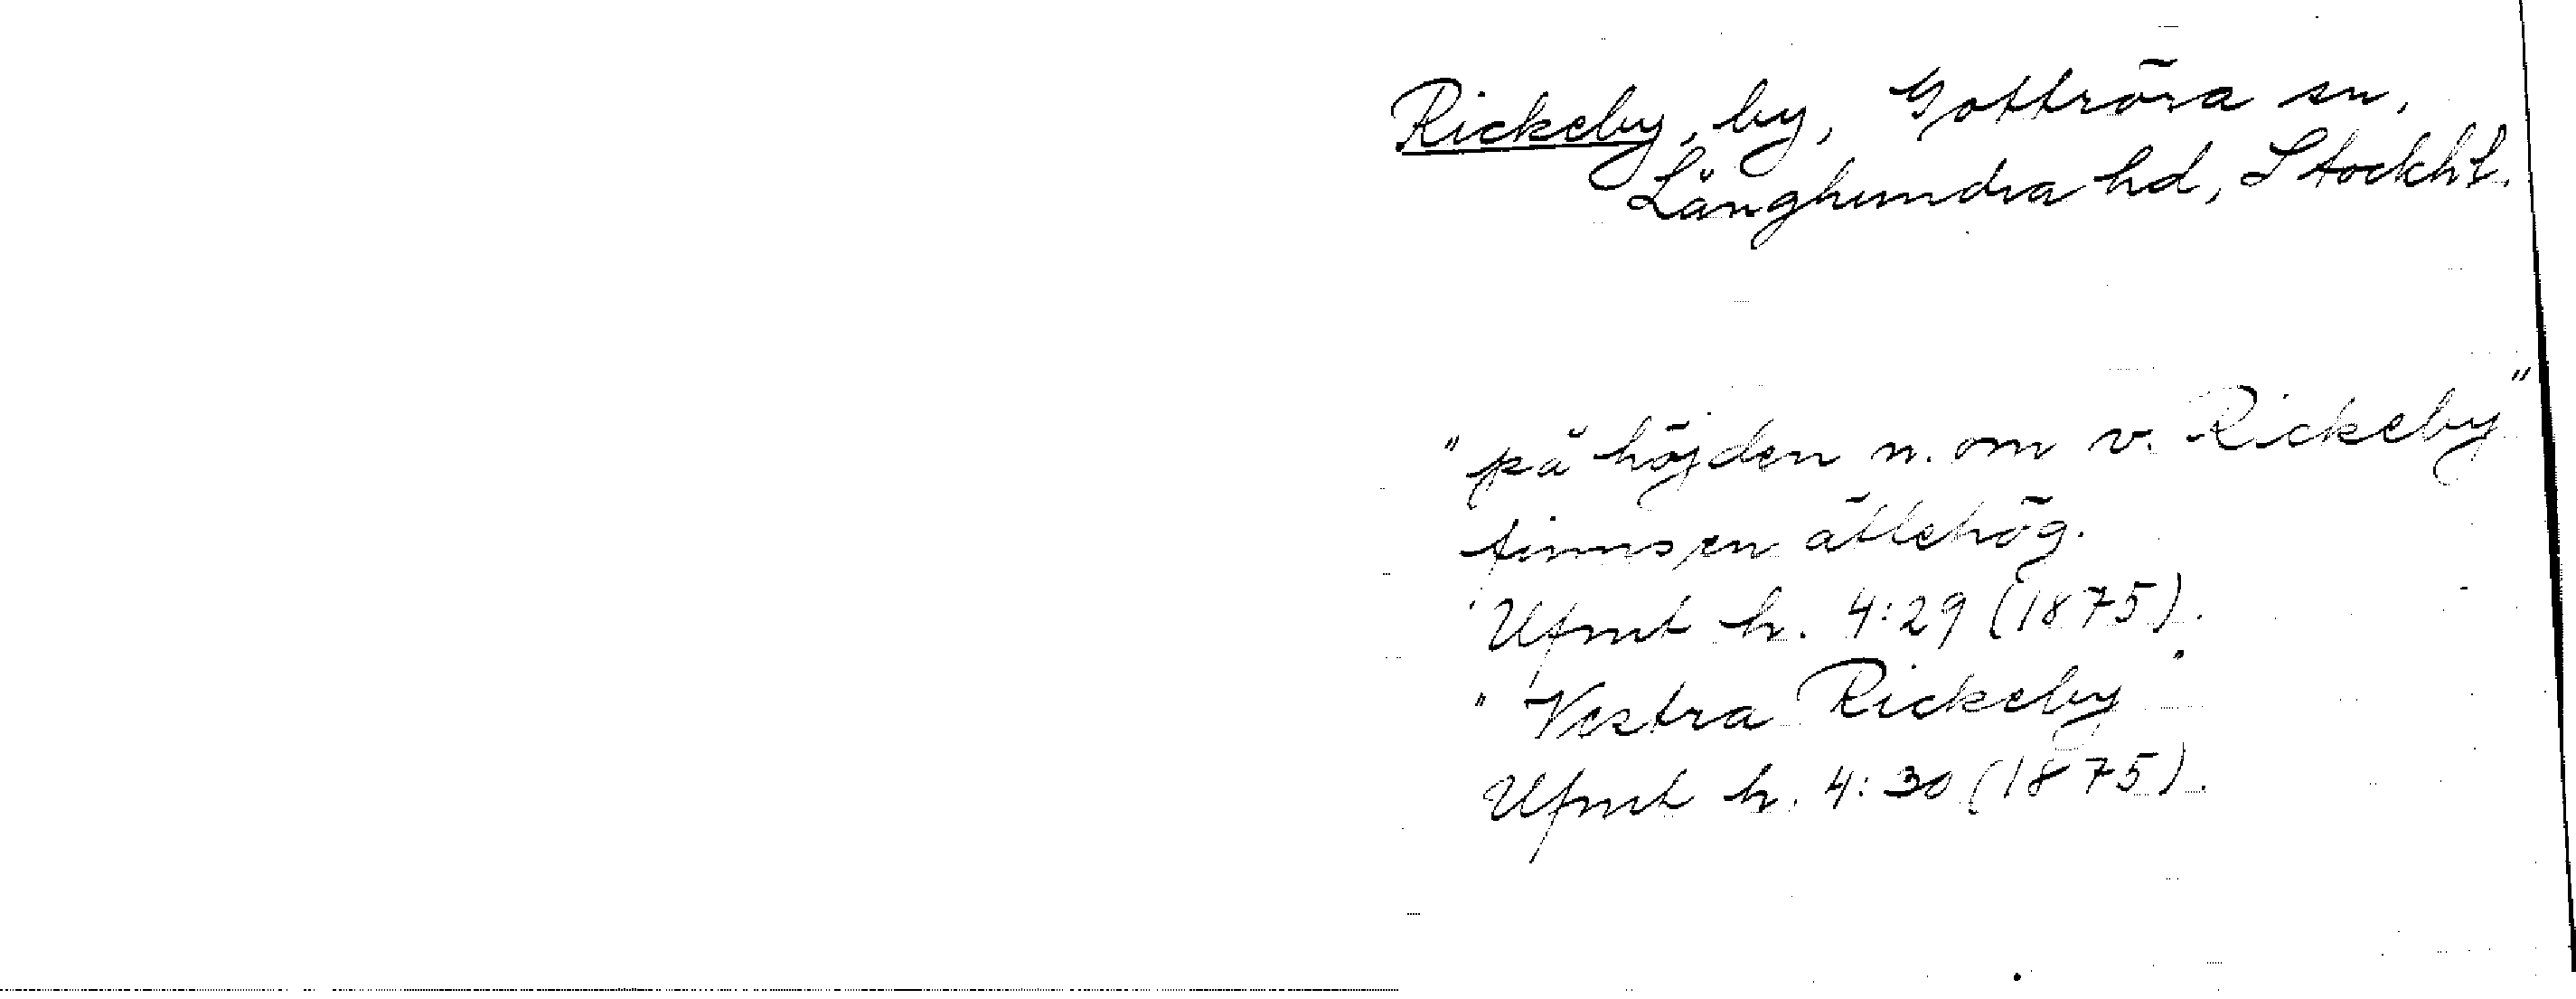 Rickeby, by, Gottröra sn,
Långhundra hd, Stockh.l.
"på höjden n. om v. Rickeby"
finns en ättehög.
Ufmt h. 4:29 (1875).
"Vestra Rickeby"
Ufmt h. 4:30 (1875).